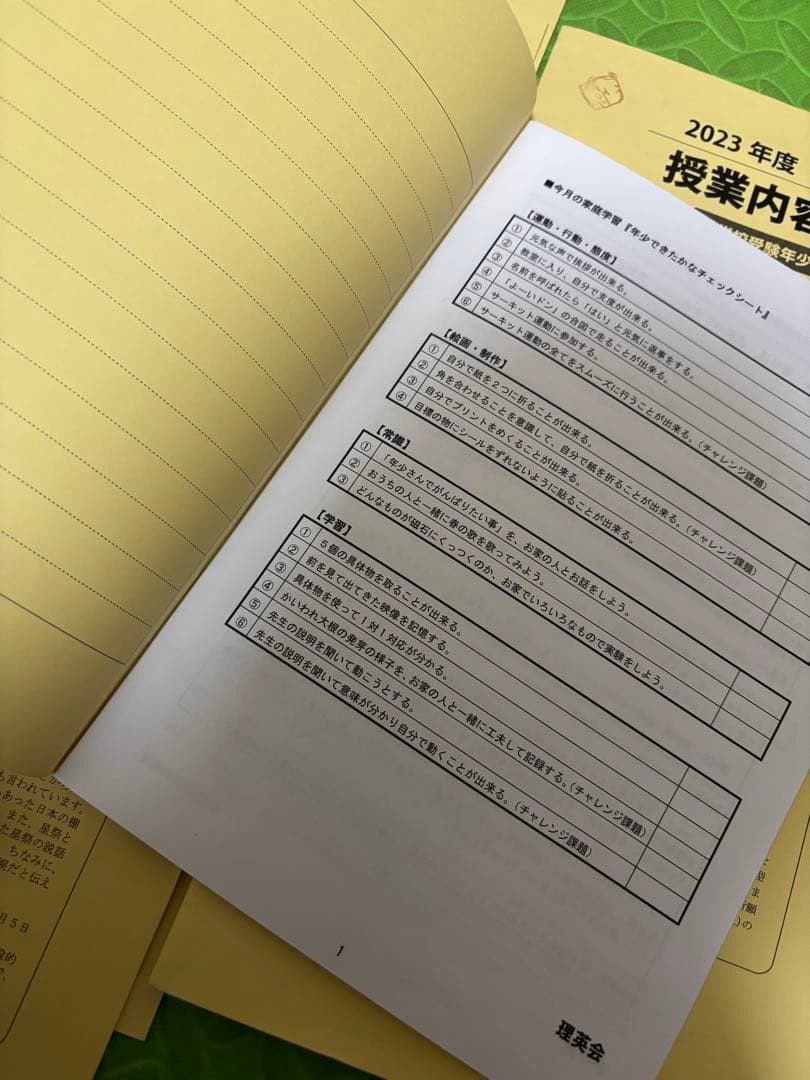 2023年度
授業内容
校受験年少
■今月の家庭学習『年少できたかなチェックシート』
【運動・行動・態度】
① 元気な声で挨拶が出来る。
② 教室に入り、自分で支度が出来る。
③ 名前を呼ばれたら「はい」と元気に返事をする。
④ 「よーいドン」の合図で走ることが出来る。
⑤ サーキット運動に参加する。
⑥ サーキット運動の全てをスムーズに行うことが出来る。(チャレンジ課題)
【絵画・制作】
① 自分で紙を2つに折ることが出来る。
② 角を合わせることを意識して、自分で紙を折ることが出来る。(チャレンジ課題)
③ 自分でプリントをめくることが出来る。
④ 目標の物にシールをずれないように貼ることが出来る。
【常識】
① 「年少さんでがんばりたい事」を、お家の人とお話をしよう。
② おうちの人と一緒に春の歌を歌ってみよう。
③ どんなものが磁石にくっつくのか、お家でいろいろなもので実験をしよう。
【学習】
① 5個の具体物を取ることが出来る。
② 前を見て出てきた映像を記憶する。
③ 具体物を使って1対1対応が分かる。
④ かいわれ大根の発芽の様子を、お家の人と一緒に工夫して記録する。(チャレンジ課題)
⑤ 先生の説明を聞いて動こうとする。
⑥ 先生の説明を聞いて意味が分かり自分で動くことが出来る。(チャレンジ課題)
1
理英会
も言われています。
あった日本の棚
また、星祭と
た星祭の説話
ちなみに、
だと伝え
月5日